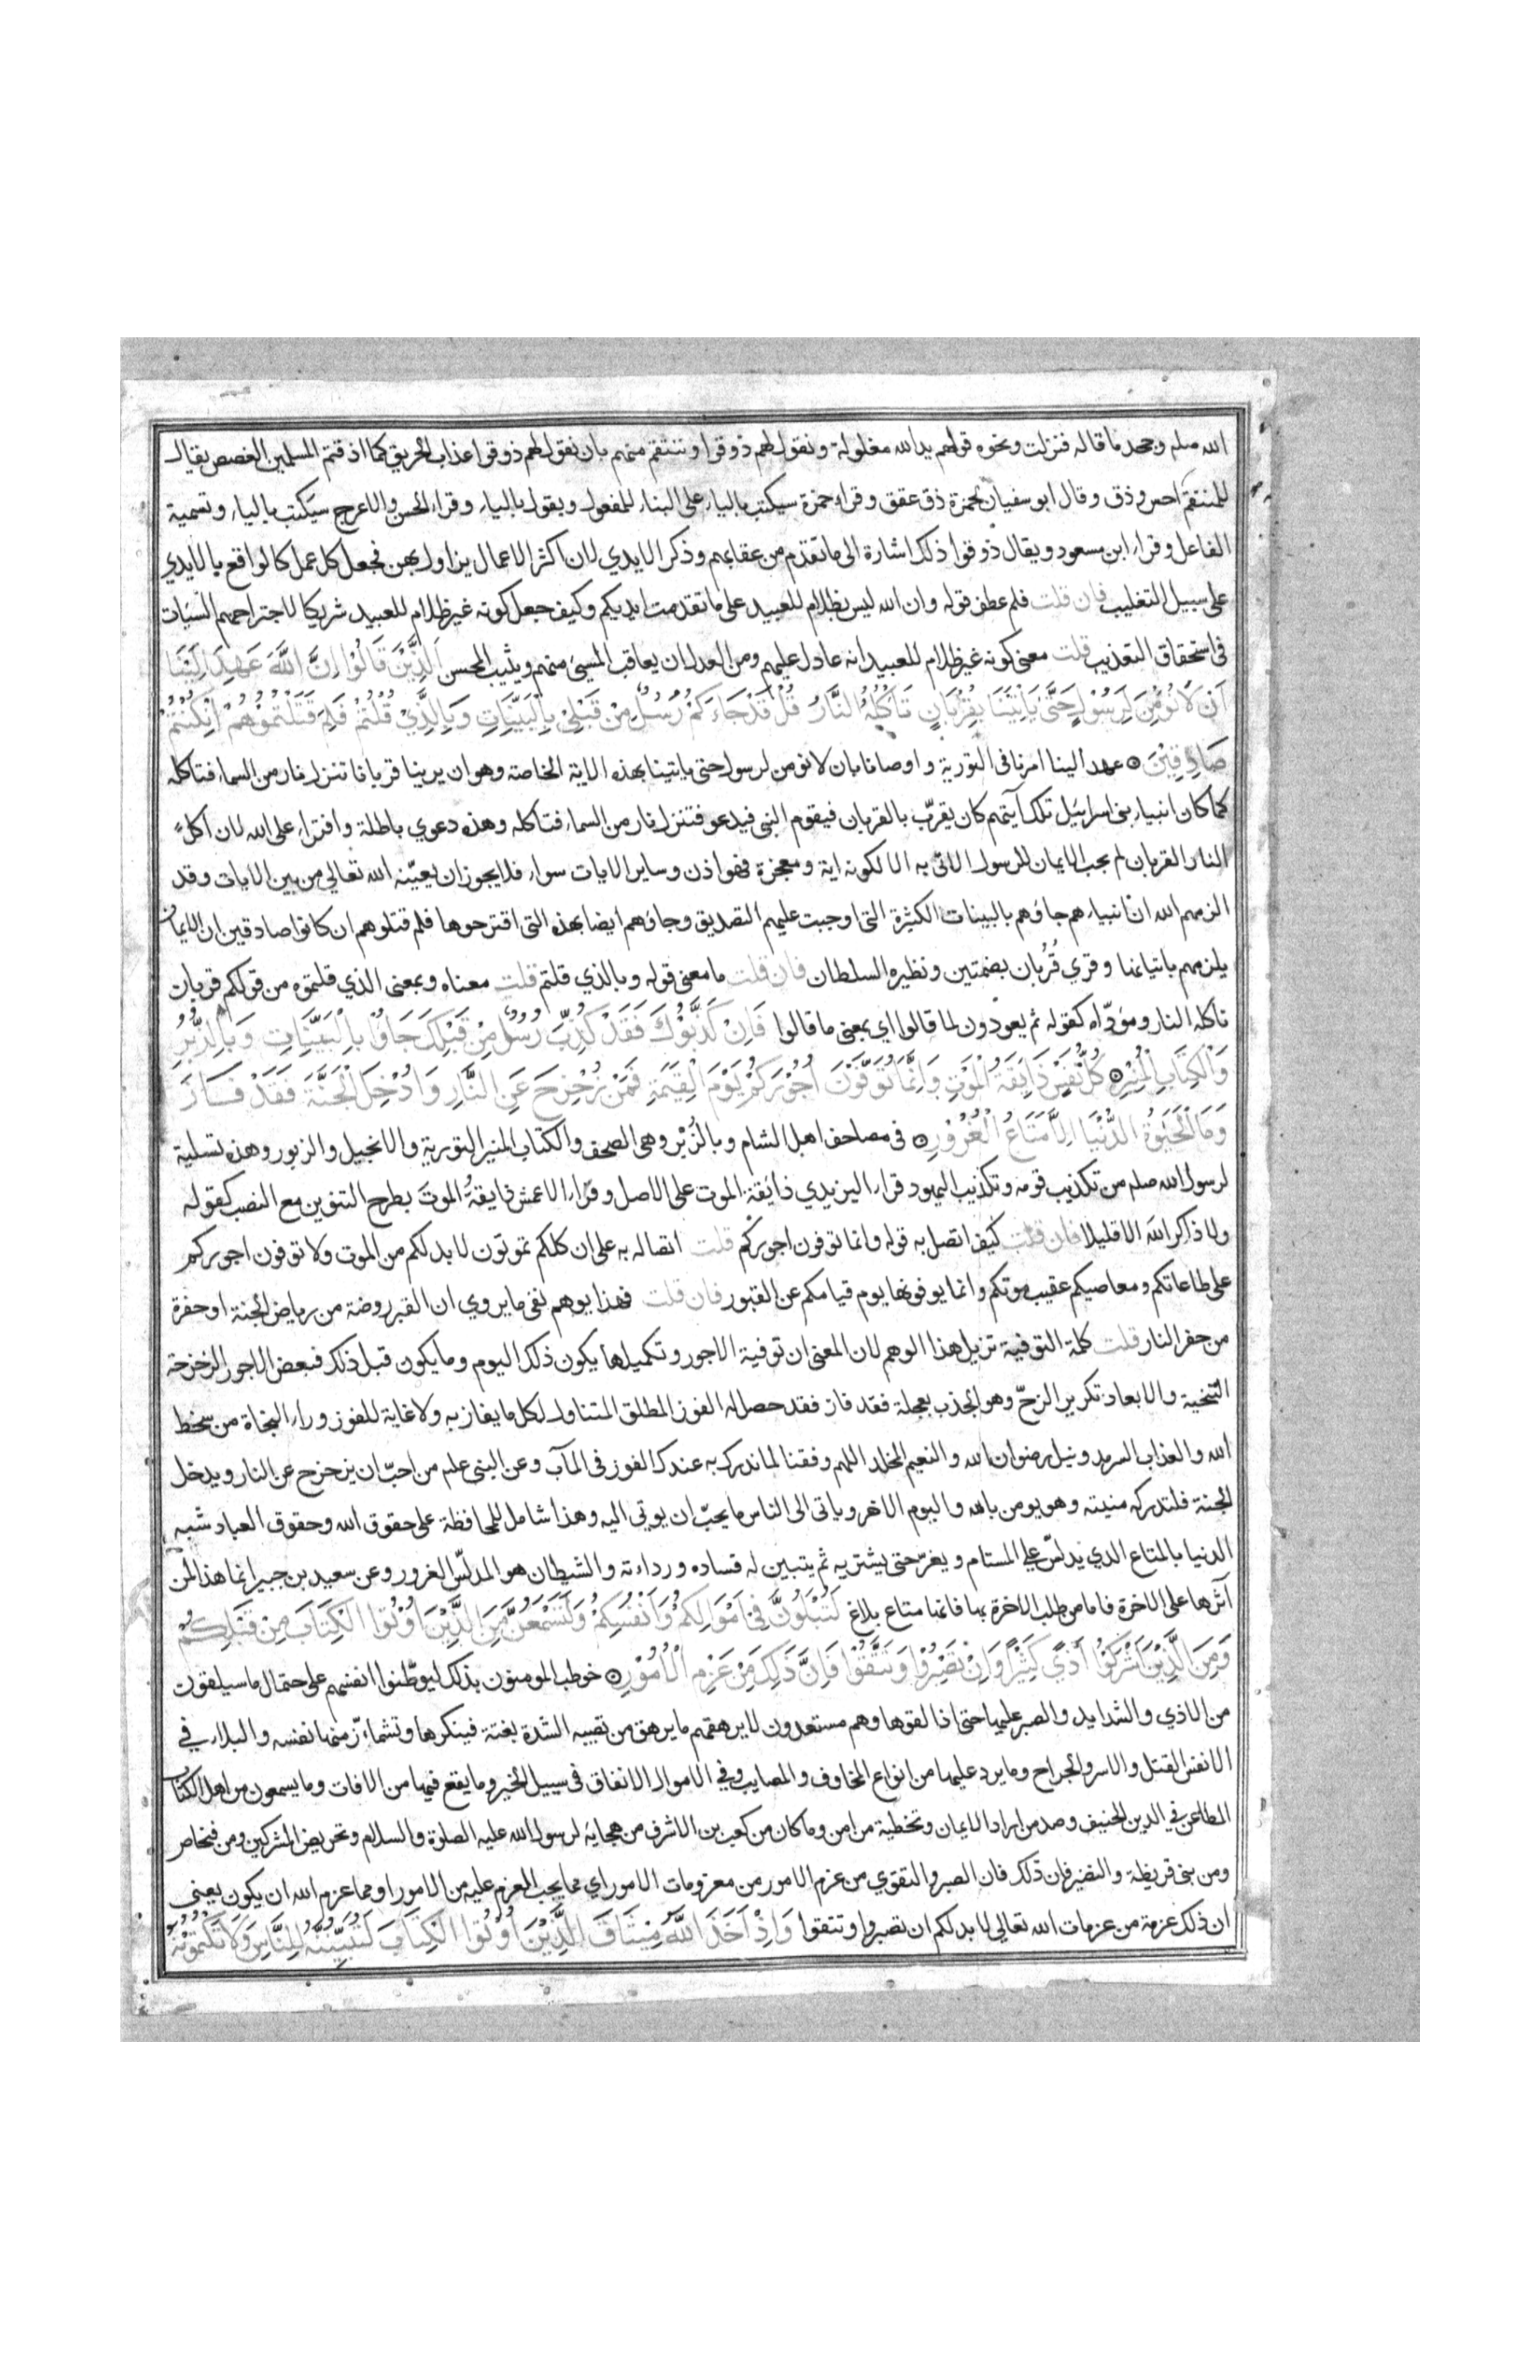 الله صلم وجحد ما قاله فنزلت ونحوه قولهم يد الله مغلولة ونقول لهم ذوقوا وننتقم منهم بان نقول لهم ذوقوا عذاب الحريق كما اذقتم المسلمين الغصص يقال
للمنتقم احس وذق وقال ابو سفيان لحمزة ذق عقق وقراء حمزة سيكتب بالياء على البناء للمفعول ويقول بالياء وقراء الحسن والاعرج سيكتب بالياء وتسمية
الفاعل وقراء ابن مسعود ويقال ذوقوا ذلك اشارة الى ما تقدم من عقابهم وذكر الايدي لان اكثر الاعمال يزاول بهن فجعل كل عمل كالواقع بالايدي
على سبيل التغليب فان قلت فلم عطف قوله وان الله ليس بظلام للعبيد على ما تقدمت ايديكم وكيف جعل كونه غير ظلام للعبيد شريكا لاجتراحهم السيات
في استحقاق التعذيب قلت معنى كونه غير ظلام للعبيد انه عادل عليهم ومن العدل ان يعاقب المسيئ منهم ويثيب المحسن اَلَّذِيْنَ قَالُوْا اِنَّ اللَّهَ عَهِدَ اِلَيْنَا
اَنْ لَا نُوْمِنَ لِرَسُوْلٍ حَتَّى يَاْتِيَنَا بِقُرْبَانٍ تَاْكُلُهُ النَّارُ قُلْ قَدْ جَاءَكُمْ رُسُلٌ مِنْ قَبْلِيْ بِالْبَيِّنَاتِ وَبِالَّذِيْ قُلْتُمْ فَلِمَ قَتَلْتُمُوْهُمْ اِنْ كُنْتُمْ
صَادِقِيْنَ عهد الينا امرنا في التورية واوصانا بان لا نومن لرسول حتى ياتينا بهذه الاية الخاصة وهو ان يرينا قربانا تنزل نار من السماء فتاكله
كما كان انبياء بني اسرائيل تلك آيتهم كان يقرّب بالقربان فيقوم النبي فيدعو فتنزل نار من السماء فتاكله وهذه دعوي باطلة وافتراء على الله لان اكل
النار القربان لم يجب الايمان للرسول الاتي به الا لكونه اية ومعجزة فهو اذن وساير الايات سواء فلا يجوز ان يعيّنه الله تعالى من بين الايات وقد
الزمهم الله ان انبياءهم جاؤهم بالبينات الكثيرة التي اوجبت عليهم التصديق وجاؤهم ايضا بهذه التي اقترحوها فلم قتلوهم ان كانوا صادقين ان الايمان
يلزمهم باتيانها وقري قُرُبان بضمتين ونظيره السلطان فان قلت ما معنى قوله وبالذي قلتم قلت معناه وبمعنى الذي قلتموه من قولكم قربان
تاكله النار ومؤدّاه كقوله ثم يعودون لما قالوا اي بمعنى ما قالوا فَاِنْ كَذَّبُوْكَ فَقَدْ كُذِّبَ رُسُلٌ مِنْ قَبْلِكَ جَاؤُا بِالْبَيِّنَاتِ وَبِالزُّبُرِ
وَالْكِتَابِ الْمُنِيْرِ كُلُّ نَفْسٍ ذَائِقَةُ الْمَوْتِ وَاِنَّمَا تُوَفَّوْنَ اُجُوْرَكُمْ يَوْمَ الْقِيَمَةِ فَمَنْ زُحْزِحَ عَنِ النَّارِ وَاُدْخِلَ الْجَنَّةَ فَقَدْ فَازَ
وَمَا الْحَيَوةُ الدُّنْيَا اِلَّا مَتَاعُ الْغُرُوْرِ في مصاحف اهل الشام وبالزُبُر وهي الصحف والكتاب المنير التورية والانجيل والزبور وهذه تسلية
لرسول الله صلم من تكذيب قومه وتكذيب اليهود قراء اليزيدي ذائقة الموت على الاصل وقراء الاعمش ذايقةُ الموتَ بطرح التنوين مع النصب كقوله
ولا ذاكر اللهَ الا قليلا فان قلت كيف اتصل به قوله وانما توفون اجوركم قلت اتصاله به على ان كلكم تموتون لا بد لكم من الموت ولا توفون اجوركم
على طاعاتكم ومعاصيكم عقيب موتكم وانما يوفونها يوم قيامكم عن القبور فان قلت فهذا يوهم نفي ما يروي ان القبر روضة من رياض الجنة او حفرة
من حفر النار قلت كلمة التوفية تزيل هذا الوهم لان المعنى ان توفية الاجور وتكميلها يكون ذلك اليوم وما يكون قبل ذلك فبعض الاجور الزحزحة
التنحية والابعاد تكرير الزحّ وهو الجذب بعجلة فقد فاز فقد حصل له الفوز المطلق المتناول لكل ما يفاز به ولا غاية للفوز وراء النجاة من سخط
الله والعذاب السرمد ونيل رضوان الله والنعيم المخلد اللهم وفقنا لما ندرك به عندك الفوز في المآب وعن النبي علم من احبّ ان يزحزح عن النار ويدخل
الجنة فلتدركه منيته وهو يومن بالله واليوم الاخر وياتي الى الناس ما يحبّ ان يوتي اليه وهذا شامل للمحافظة على حقوق الله وحقوق العباد شبه
الدنيا بالمتاع الذي يدلسّ على المستام ويغرّ حتى يشتريه ثم يتبين له فساده ورداءته والشيطان هو المدلّس الغرور وعن سعيد بن جبير انما هذا لمن
آثرها على الاخرة فاما من طلب الاخرة بها فانها متاع بلاغ لَتُبْلَوُنَّ فِيْ اَمْوَالِكُمْ وَاَنْفُسِكُمْ وَلَتَسْمَعُنَّ مِنَ الَّذِيْنَ اُوْتُوا الْكِتَابَ مِنْ قَبْلِكُمْ
وَمِنَ الَّذِيْنَ اَشْرَكُوْا اَذًي كَثِيْرًا وَاِنْ تَصْبِرُوْا وَتَتَّقُوْا فَاِنَّ ذَلِكَ مِنْ عَزْمِ الْاُمُوْرِ خوطب المومنون بذلك ليوطّنوا انفسهم على احتمال ما سيلقون
من الاذي والشدايد والصبر عليها حتى اذا لقوها وهم مستعدون لا يرهقهم ما يرهق من تصيبه الشدة بغتة فينكرها وتشمازّ منها نفسه والبلاء في
الانفس القتل والاسر والجراح وما يرد عليها من انواع المخاوف والمصايب وفي الاموال الانفاق في سبيل الخير وما يقع فيها من الافات وما يسمعون من اهل الكتاب
المطاعن في الدين الحنيف وصد من اراد الايمان وتخطية من امن وما كان من كعب بن الاشرف من هجايه لرسول الله عليه الصلوة والسلام وتحريض المشركين ومن فنحاص
ومن بني قريظة والنضير فان ذلك فان الصبر والتقوي من عزم الامور من معزومات الامور اي مما يجب العزم عليه من الامور او مما عزم الله ان يكون يعني
ان ذلك عزمة من عزمات الله تعالى لا بد لكم ان تصبروا وتتقوا وَاِذْ اَخَذَ اللَّهُ مِيْثَاقَ الَّذِيْنَ اُوْتُوا الْكِتَابَ لَتُبَيِّنُنَّهُ لِلنَّاسِ وَلَا تَكْتُمُوْنَهُ